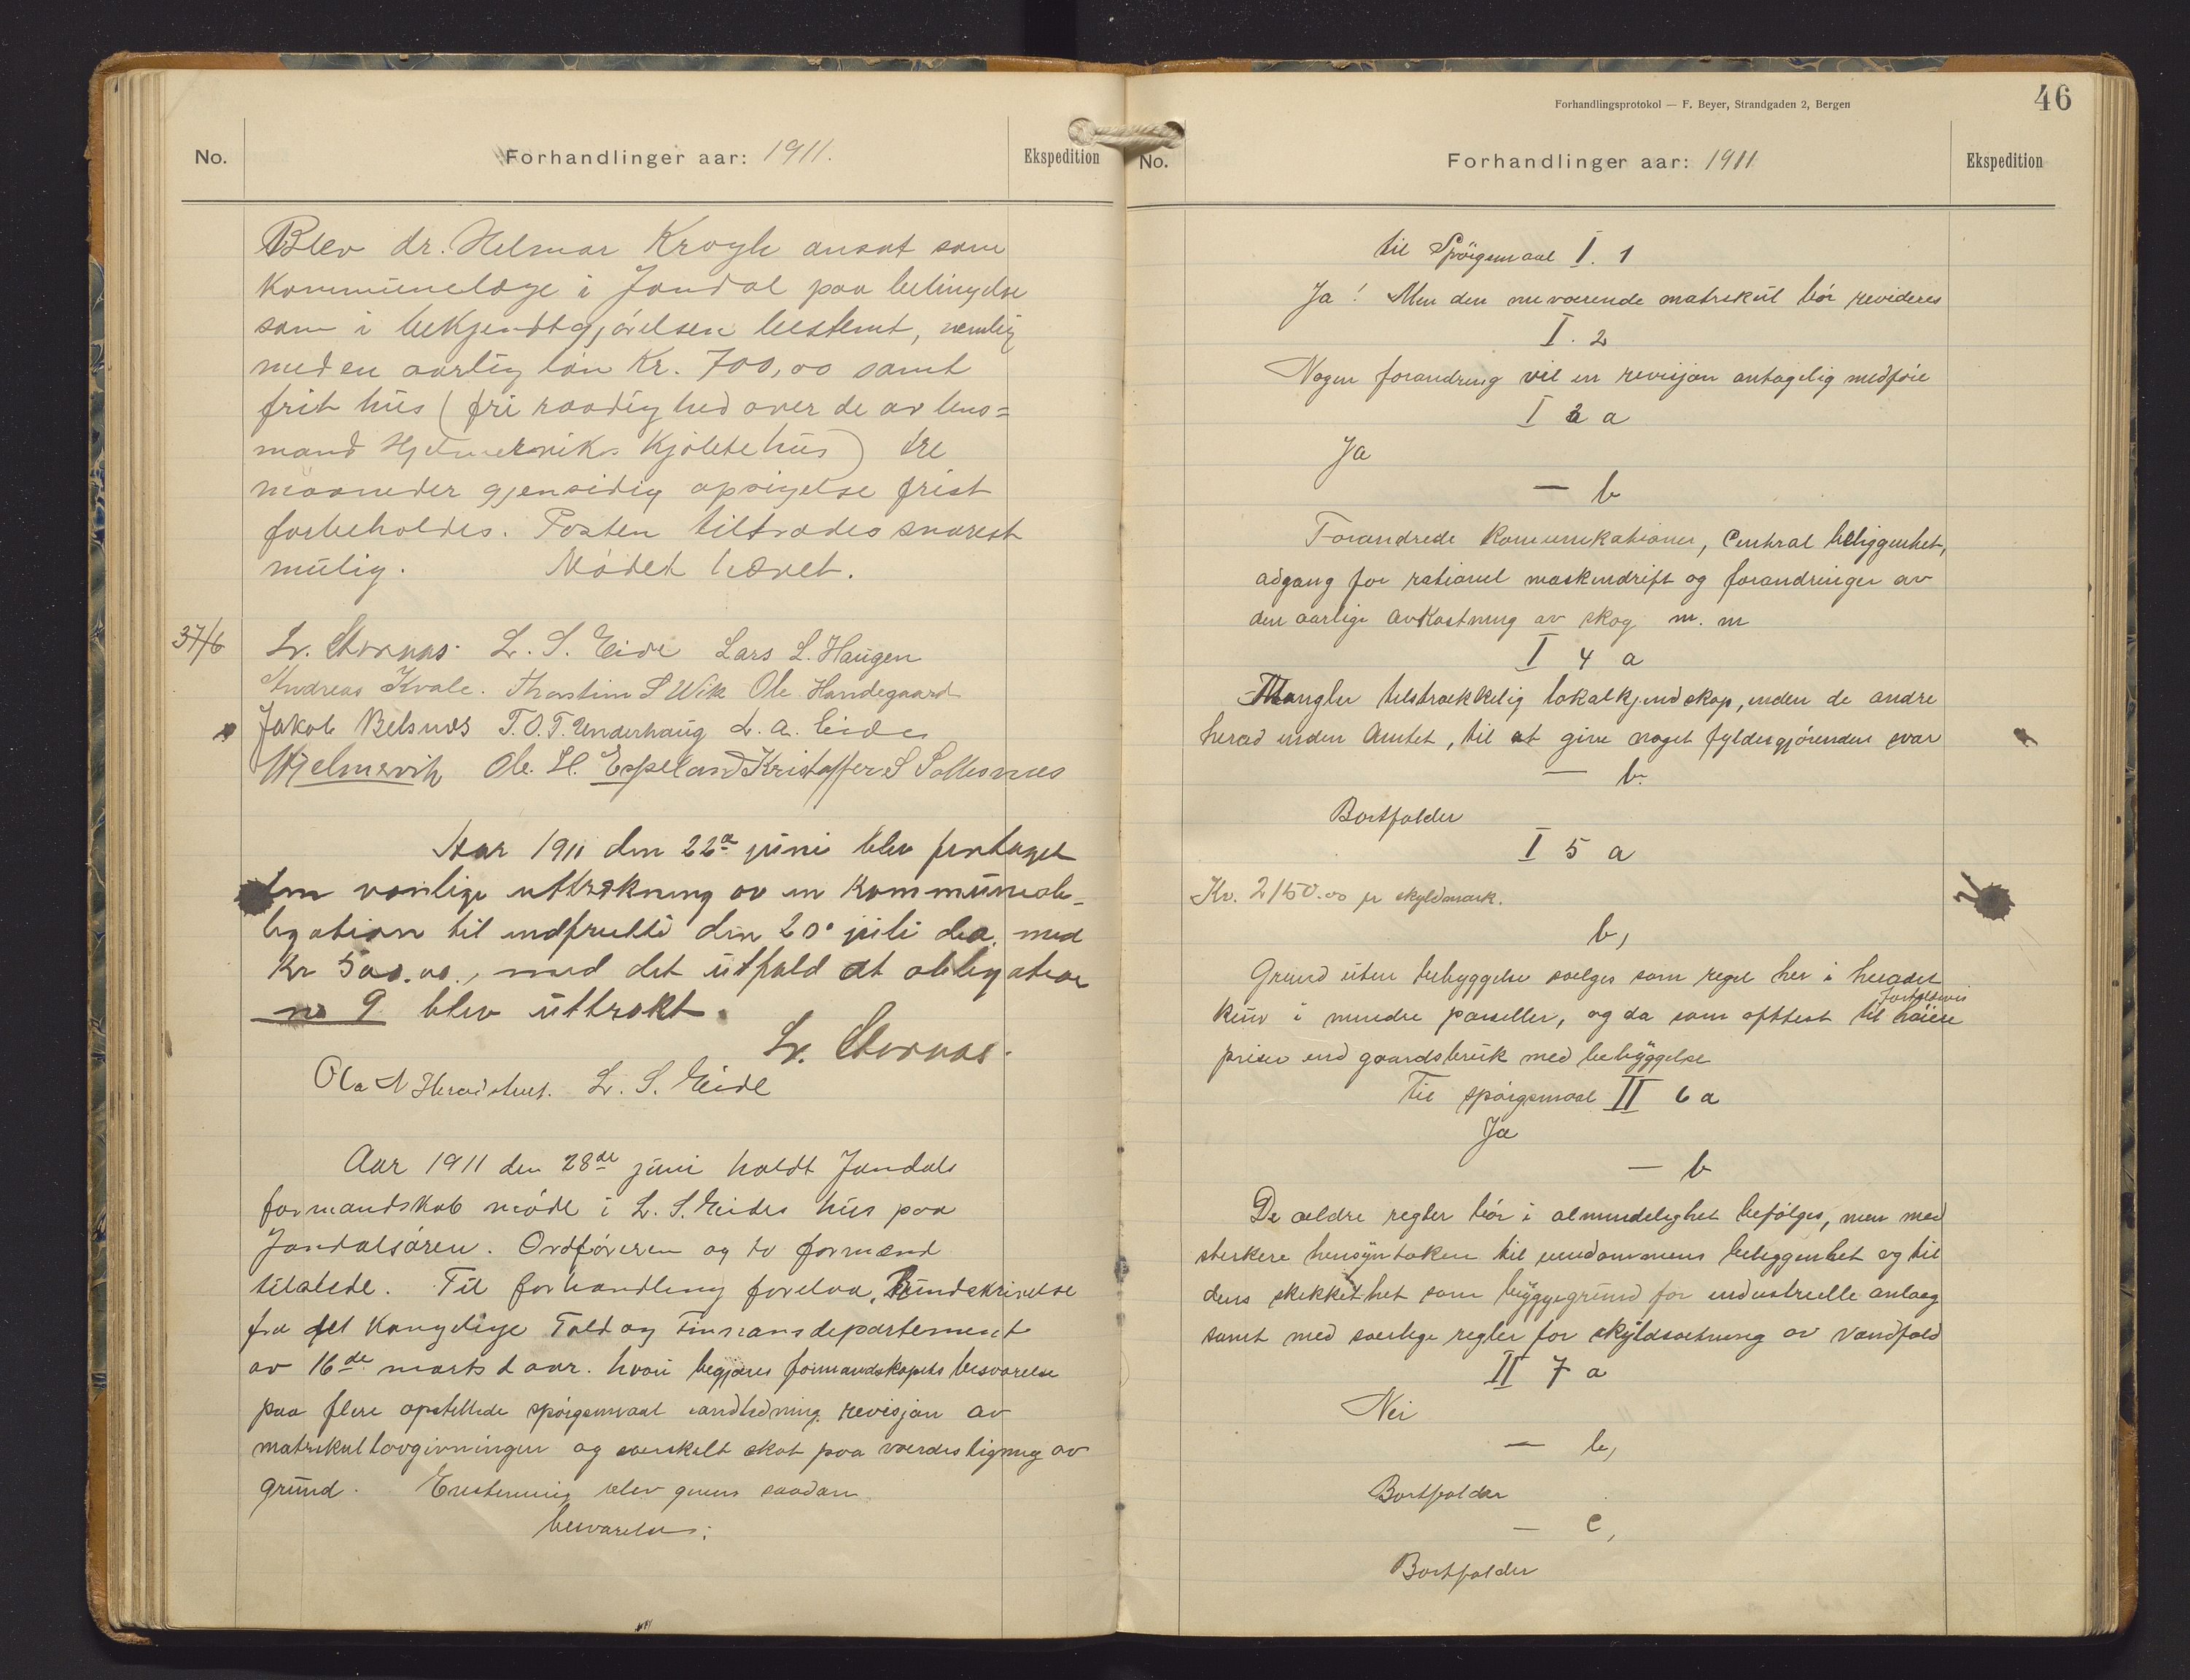 No.
Forhandlinger aar: 1911.
Ekspedition
Blev dr. Helmar Krogh ansat som
Kommunelæge i Jondal paa betingelse
som i bekjendtgjørelsen bestemt, nemlig
med en aarlig løn Kr. 700,00 samt
frit hus (fri raadighed over de av lens=
mand Hjelmerviks kjøbte hus) tre
maaneder gjensidig opsigelse frist
forbeholdes. Posten tiltrædes snarest
mulig. Mødet hævet.
37/6
Lr. Stornæs. L. S. Eide Lars L. Haugen
Andreas Kvale. Thorstein S Wik Ole Handegaard
Jakob Belsnæs T. O. T. Underhaug L. A. Eide
Hjelmervik Ole. H. Espeland Kristoffer S Solesnæs
Aar 1911 den 22de juni blev foretaget
den vanlige uttrækning av en Kommuneob-
ligation til indfrielse den 20. juli d.a. med
Kr 500.00., med det utfald at obligation
no 9 blev uttrukt.
Lr. Stornæs.
Ola N Heradstveit. L. S. Eide
Aar 1911 den 28de juni holdt Jondals
formandskab møde i L. S. Eides hus paa
Jondalsøren. Ordføreren og to formænd
tilstede. Til forhandling forelaa, Rundskrivelse
fra det Kongelige Told og Finansdepartement
av 16de marts d aar. hvori begjæres formandskapets besvarelse
paa flere opstillede spørgsmaal andledning revisjon av
matrikullovgivningen og særskilt skat paa værdistigning av
grund. Enstemmig blev given saadan
besvarelse:
Forhandlingsprotokol — F. Beyer, Strandgaden 2, Bergen
46
No.
Forhandlinger aar: 1911
Ekspedition
til Spørgsmaal I. 1
Ja! Men den nuværende matrikul bør revideres
I. 2
Nogen forandring vil en revisjon antagelig medføre
I 3 a
Ja
— b
Forandrede Kommunikationer, Central beliggenhet,
adgang for rationel maskindrift og forandringer av
den aarlige avkastning av skog m. m
I 4 a
Mangler tilstrækkelig lokalkjendskap, inden de andre
herad inden Amtet, til at give noget fyldesgjørende svar
— b.
Bortfalder
I 5 a
Kr. 2150.00 pr skyldmark.
b,
Grund uten bebyggelse sælges som regel her i heradet
kun i mindre parseller, og da som oftest til forholdsvis høiere
priser end gaardsbruk med bebyggelse
Til spørgsmaal II 6 a
Ja
— b
De ældre regler bør i almindelighet befølges, men med
sterkere hensyntaken til eiendommens beliggenhet og til
dens skikkethet som byggegrund for industrielle anlæg
samt med særlige regler for skyldsætning av Vandfald
II 7 a
Nei
— b,
Bortfalder
— c,
Bortfalder